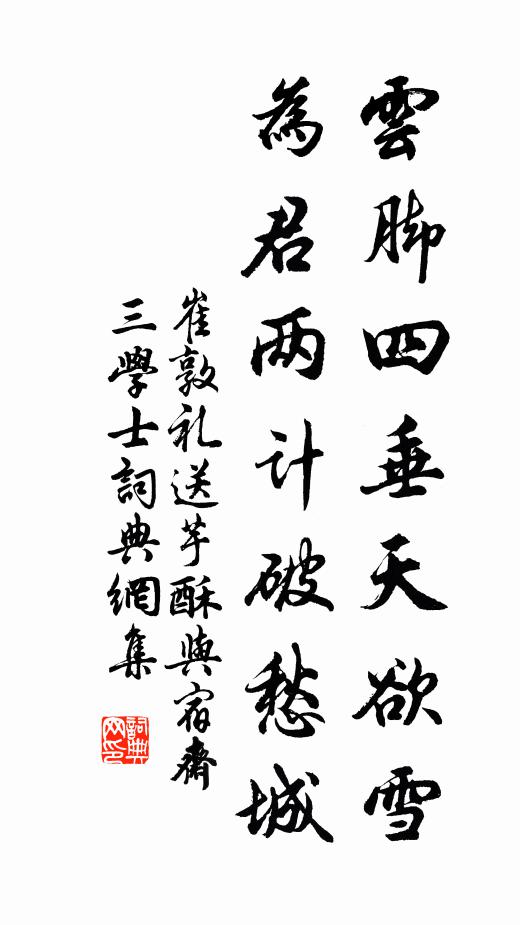 雲脚四垂天欲雪
為君两計破愁城
崔敦礼送芋酥與宿齋
三學士詞典網集
詞典網印